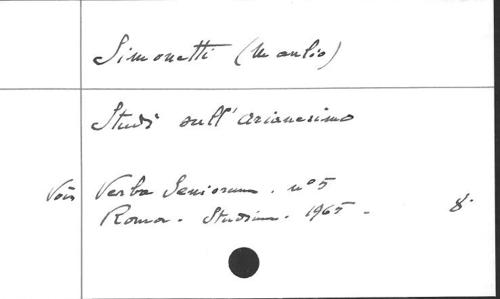 Simonetti (Manlio)
Studi sull'arianesimo
Voir Verba Seniorum. n° 5
Roma. Studium. 1965. 8.